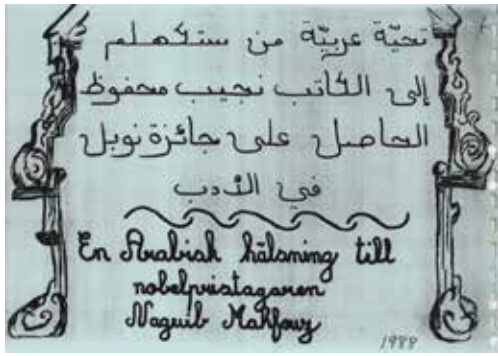 تحيّة عربيّة من ستكهلم
إلى الكاتب نجيب محفوظ
الحاصل على جائزة نوبل
في الأدب
En Arabisk hälsning till
nobelpristagaren
Naguib Mahfouz
1988